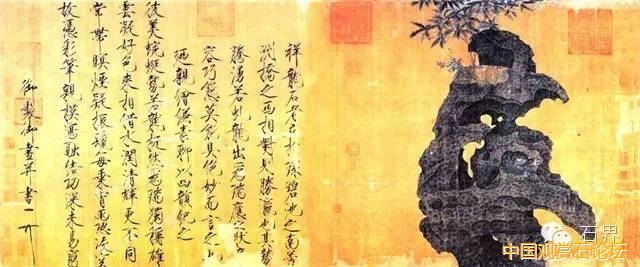 祥龍石者立於環碧池之南芳
洲橋之西相對則勝瀛也其勢
騰湧若虬龍出為瑞應之狀奇
容巧態莫能具絕妙而言之也
廼親繪縑素聊以四韻紀之
彼美蜿蜒勢若龍挺然為瑞獨稱雄
雲凝好色來相借水潤清輝更不同
常帶暝煙疑振鬣每乘宵雨恐凌空
故憑彩筆親模寫融結功深未易窮
御製御畫并書
石界
中国观赏石论坛